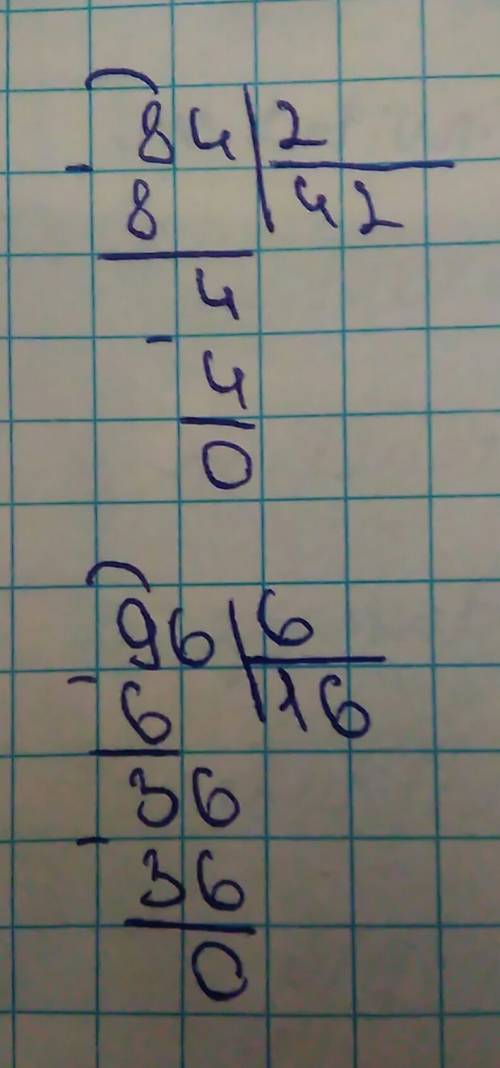 84 2
- 8 42
4
- 4
0
96 6
- 6 16
36
- 36
0